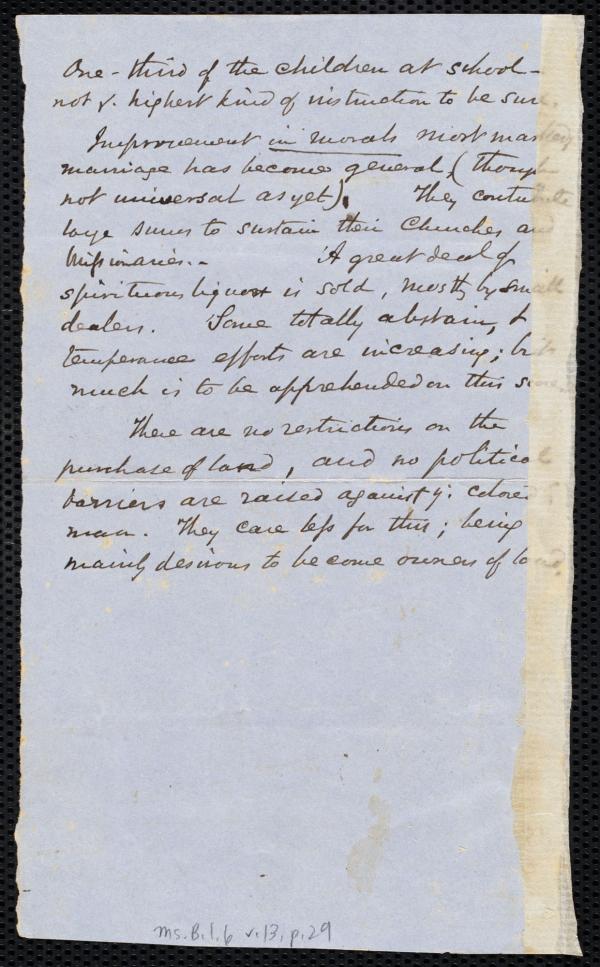 One-third of the children at school -
not y. highest kind of instruction to be sure.
Improvement in morals most marked;
marriage has become general, (though
not universal as yet). They contribute
large sums to sustain their Churches and
Missionaries. - A great deal of
spirituous liquor is sold, mostly by small
dealers. Some totally abstain, &
temperance efforts are increasing; but
much is to be apprehended on this score.
There are no restrictions on the
purchase of land, and no political
barriers are raised against y: colored
man. They care less for this; being
mainly desirous to become owners of land.
Ms. B. 1. 6 v. 13, p. 29